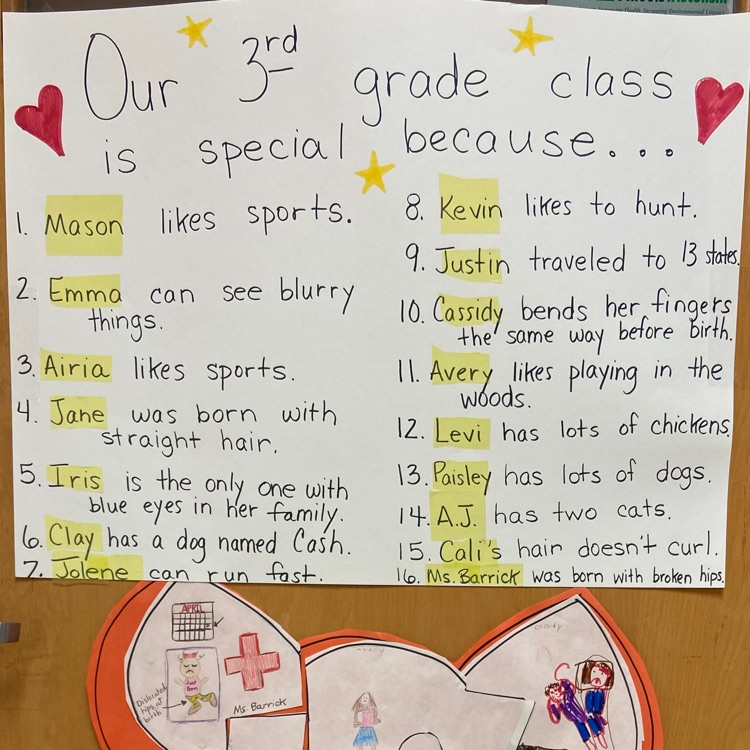 Our 3rd grade class
is special because...
1. Mason likes sports.
2. Emma can see blurry
things.
3. Airia likes sports.
4. Jane was born with
straight hair.
5. Iris is the only one with
blue eyes in her family.
6. Clay has a dog named Cash.
7. Jolene can run fast.
8. Kevin likes to hunt.
9. Justin traveled to 13 states.
10. Cassidy bends her fingers
the same way before birth.
11. Avery likes playing in the
woods.
12. Levi has lots of chickens.
13. Paisley has lots of dogs.
14. A.J. has two cats.
15. Cali's hair doesn't curl.
16. Ms. Barrick was born with broken hips.
APRIL
Dislocated
hips at
birth
Ms. Barrick
cassidy